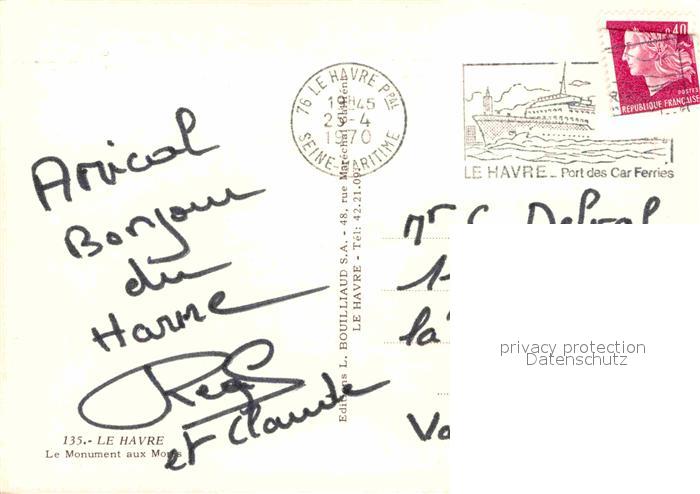 Amical
Bonjour
du
Havre
et Claude
135.- LE HAVRE
Le Monument aux Morts
Editions L. BOUILLIAUD S.A. - 48, rue Maréchal Galliéni
LE HAVRE - Tél: 42.21.09
76 LE HAVRE Ppal
19H45
23-4
1970
SEINE-MARITIME
LE HAVRE - Port des Car Ferries
0,40
POSTES
REPUBLIQUE FRANÇAISE
Mr C.
la
privacy protection
Datenschutz